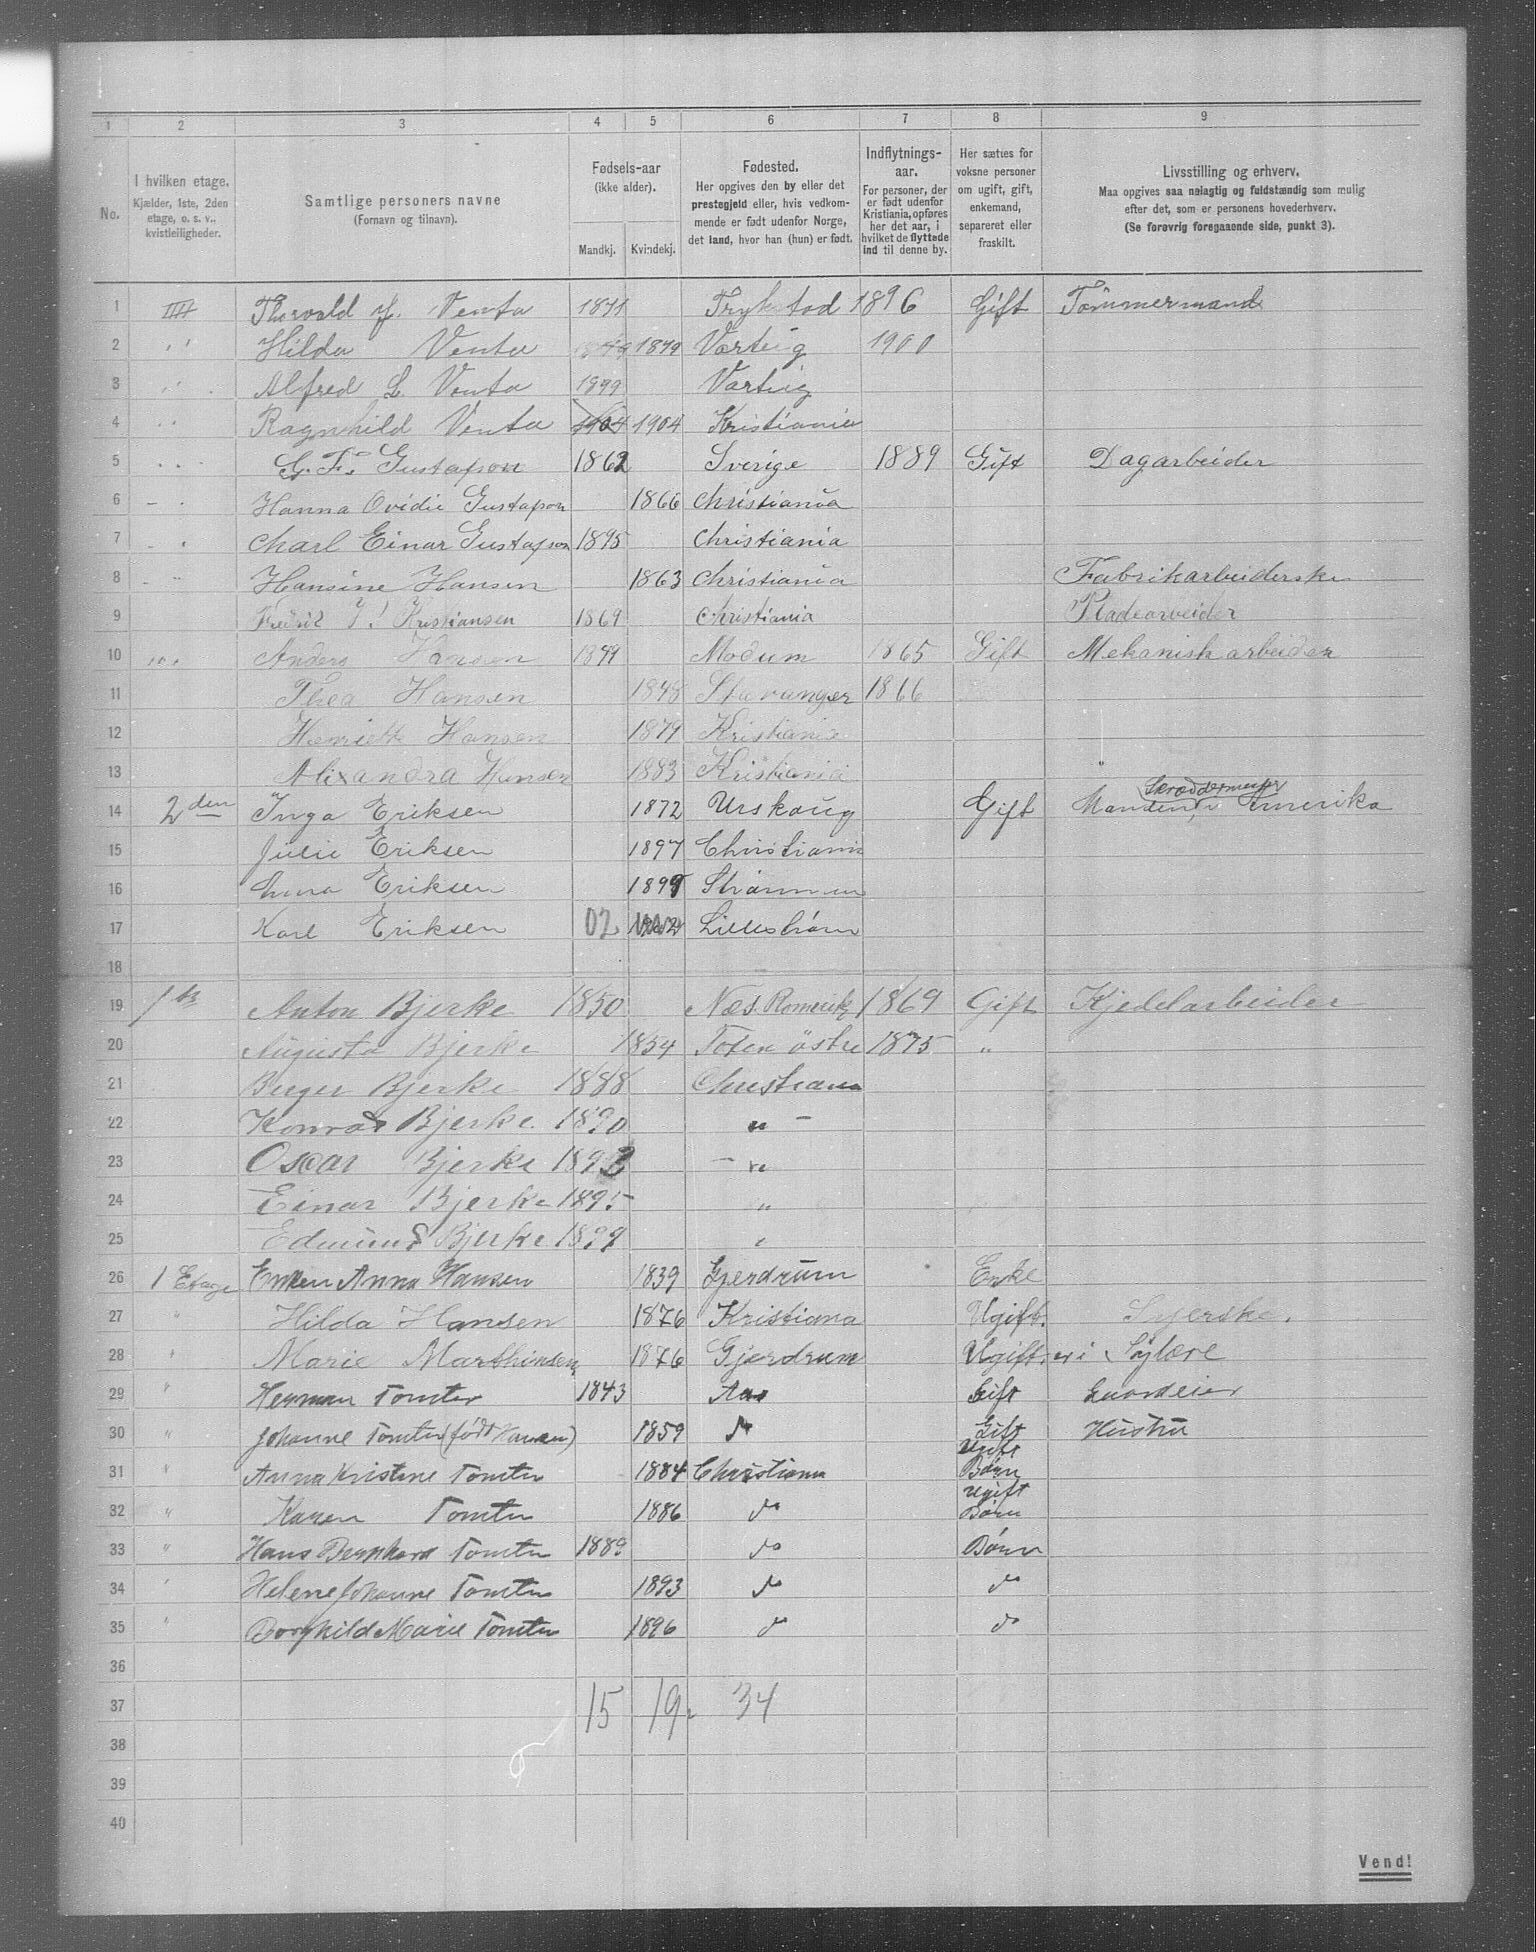 1 2 3 4 5 6 7 8 9
No. I hvilken etage. Kjælder, 1ste, 2den etage, o. s. v., kvistleiligheder. Samtlige personers navne (Fornavn og tilnavn). Fødsels-aar (ikke alder). Mandkj. Kvindekj. Fødested. Her opgives den by eller det prestegjeld eller, hvis vedkommende er født udenfor Norge, det land, hvor han (hun) er født. Indflytnings-aar. For personer, der er født udenfor Kristiania, opføres her det aar, i hvilket de flyttede ind til denne by. Her sættes for voksne personer om ugift, gift, enkemand, separeret eller fraskilt. Livsstilling og erhverv. Maa opgives saa nøiagtig og fuldstændig som mulig efter det, som er personens hovederhverv. (Se forøvrig foregaaende side, punkt 3).
1 Thorvald Venta 1871 Trykstad 1896 Gift Tømmermand
2 " Hilda Venta 1879 Varteig 1900
3 " Alfred L Venta 1899 Varteig
4 " Ragnhild Venta 1904 1904 Kristiania
5 " G. F. Gustafson 1862 Sverige 1889 Gift Dagarbeider
6 - " Hanna Ovidie Gustafson 1866 Christiania
7 - " Charl Einar Gustafson 1895 Christiania
8 - " Hansine Hansen 1863 Christiania Fabrikarbeiderske
9 Fredrik Kristiansen 1869 Christiania Pladearbeider
10 " Anders Hansen Modum 1865 Gift Mekanisk arbeider
11 Thea Hansen 1848 Stavanger 1866
12 Henriette Hansen 1879 Kristiania
13 Alixandra Hansen 1883 Kristiania
14 2den Inga Eriksen 1872 Urskoug Gift Manden i Amerika Skræddermester
15 Julie Eriksen 1897 Christiania
16 Eriksen 1899 Strømmen
17 Karl Eriksen 02 Lillestrøm
18
19 Anton Bjerke 1850 Næs. Romerike 1869 Gift Kjedelarbeider
20 Augusta Bjerke 1854 Toten östre 1875 "
21 Birger Bjerke 1888 Christiania
22 Konrad Bjerke 1890 " -
23 Oscar Bjerke 1893 - "
24 Einar Bjerke 1895 "
25 Edmund Bjerke 1897 "
26 1 Etage Enken Anna Hansen 1839 Gjerdrum Enke
27 " Hilda Hansen 1876 Kristiana Ugift. Syerske.
28 " Marie Marthinsen 1876 Gjerdrum Ugift. er i Sylære
29 " Herman Tomter 1843 Aas Gift Gaardeier
30 " Johanne Tomter (født Hansen) 1859 do Gift Hustru
31 " Anna Kristine Tomter 1884 Christiana Ugift Børn
32 " Karen Tomter 1886 do Ugift Børn
33 " Hans Bernhard Tomter 1889 do Børn
34 " Helene Johanne Tomter 1893 do do
35 " Borghild Marie Tomter 1896 do do
36
37 15 19. 34
38
39
40
Vend!